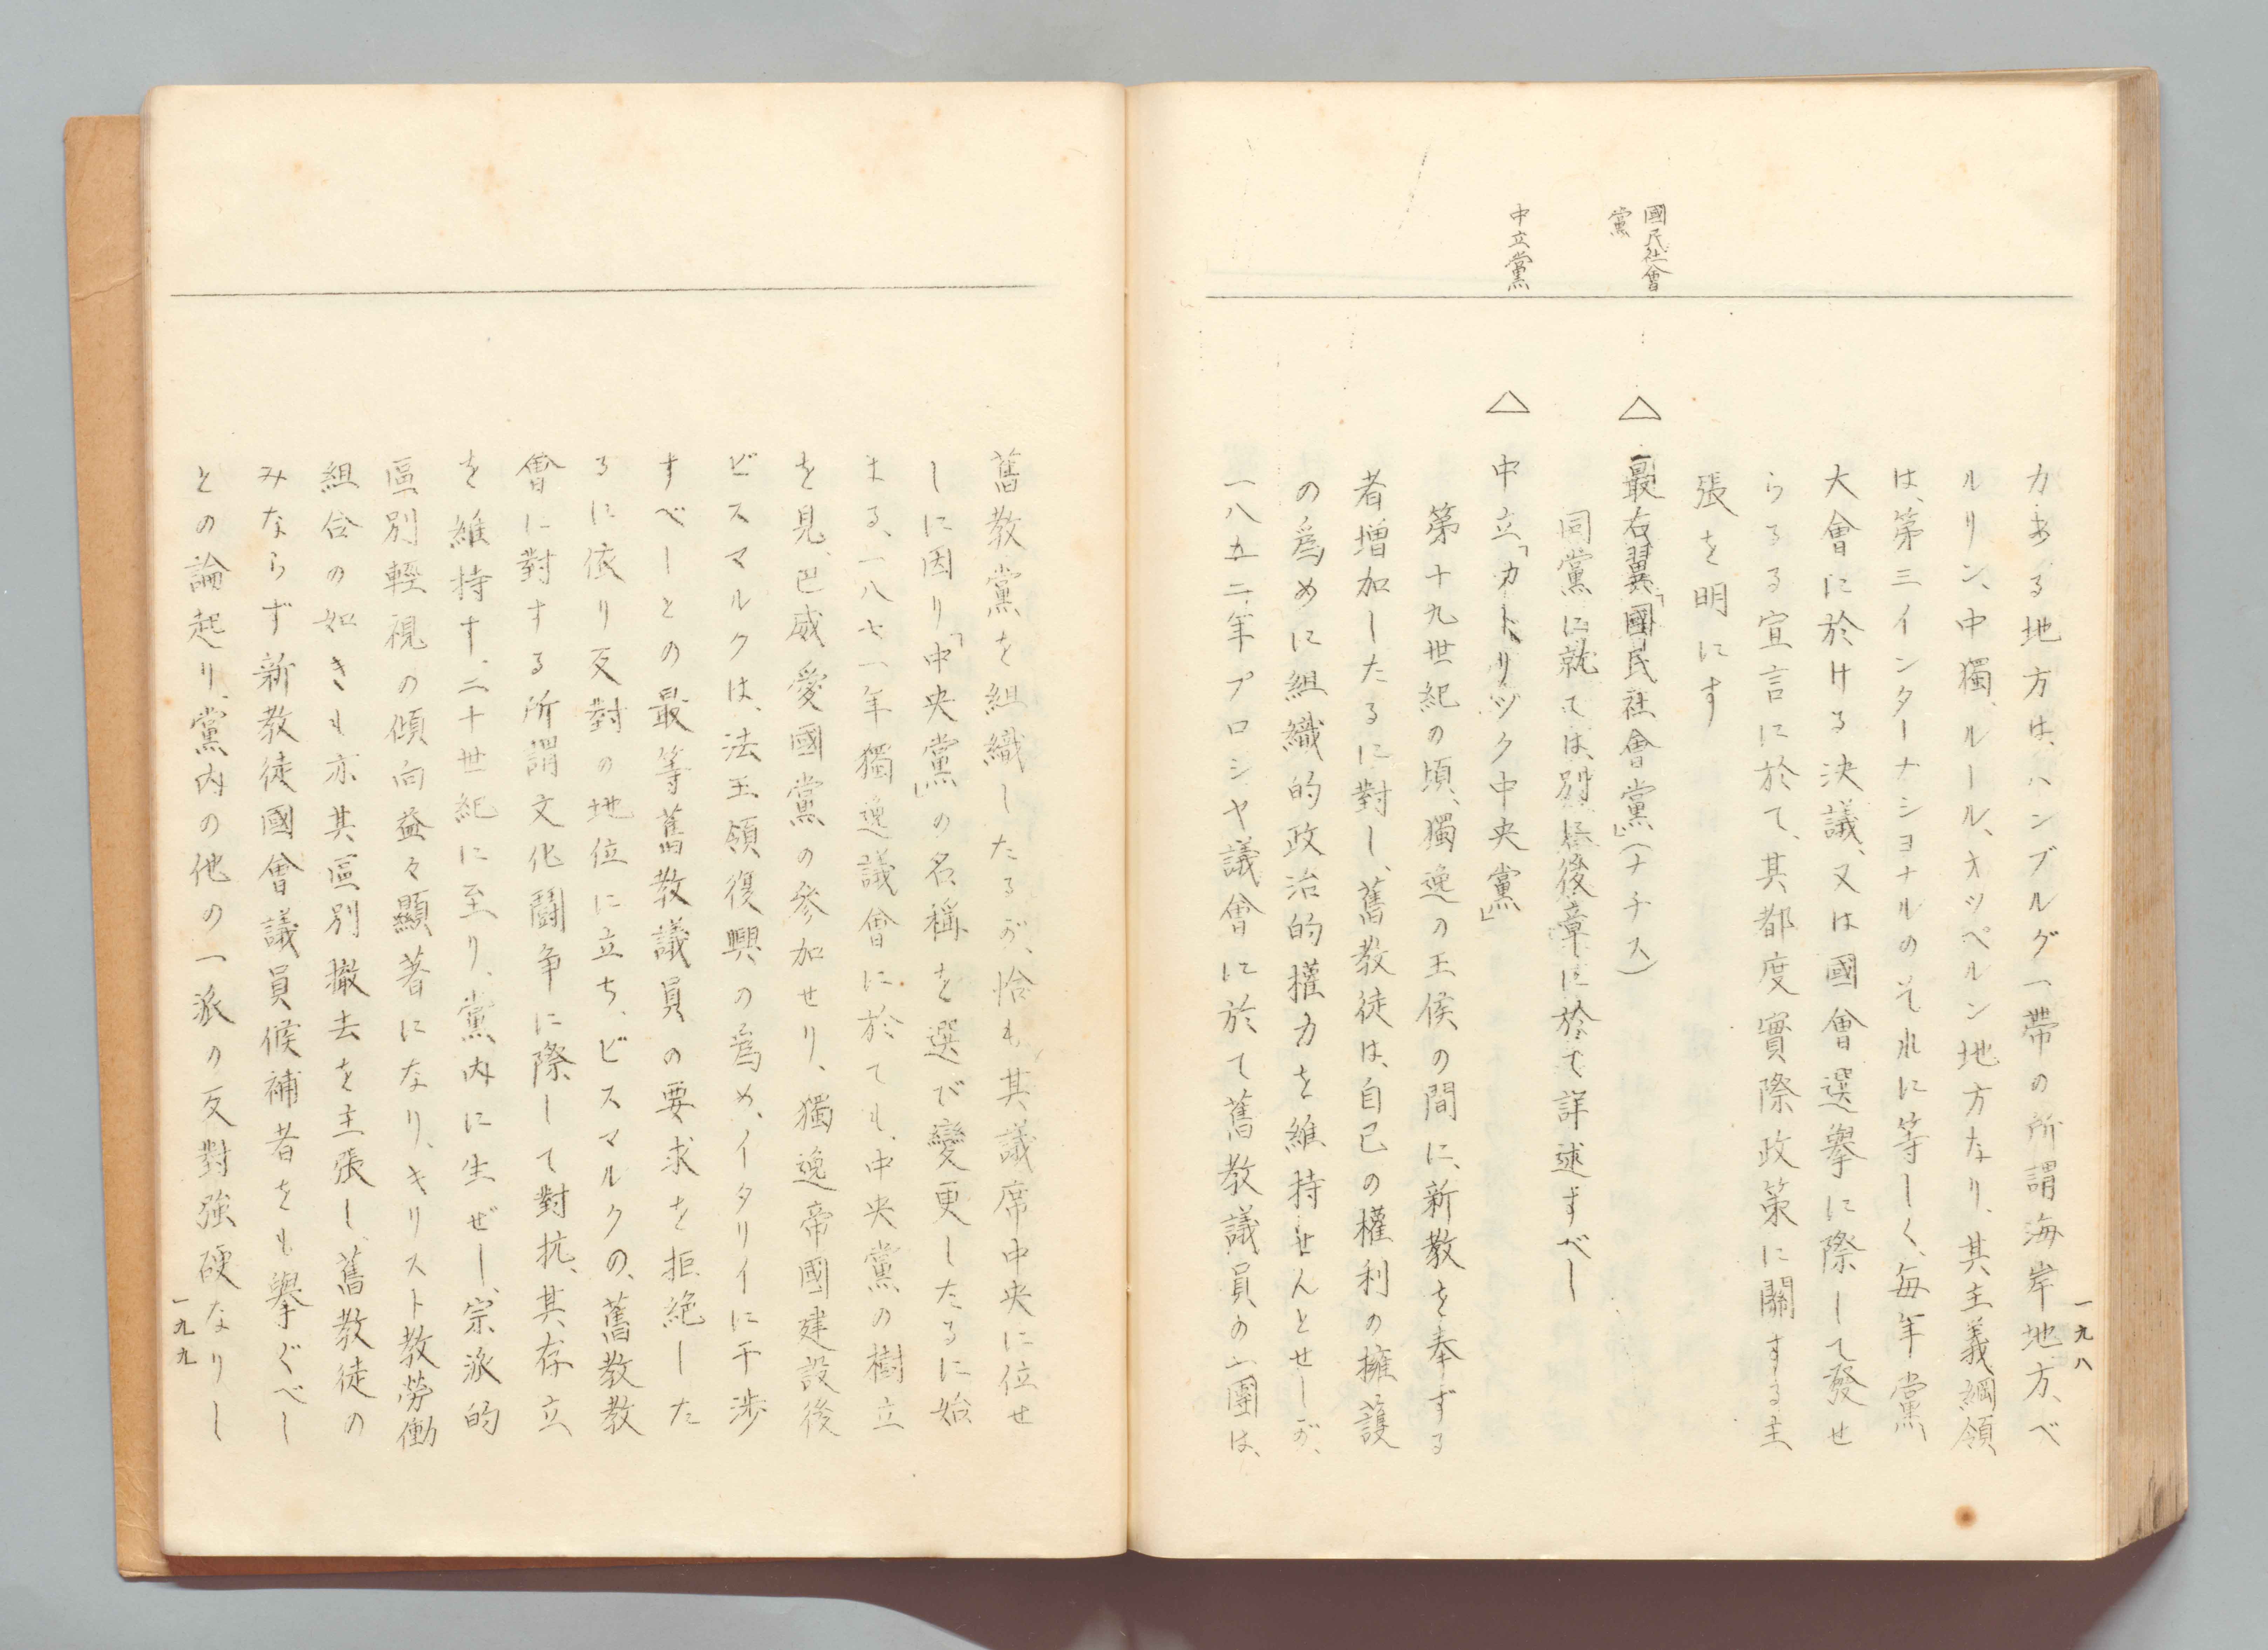 一九八
力ある地方は、ハンブルグ一帶の所謂海岸地方、ベ
ルリン、中獨、ルール、オッペルン地方なり、其主義綱領
は、第三インターナショナルのそれに等しく、毎年黨
大會に於ける決議、又は國會選擧に際して發せ
らるる宣言に於て、其都度實際政策に關する主
張を明にす
國民社會
黨
△最右翼「國民社會黨」(ナチス)
同黨に就ては別後章に於て詳述すべし
中立黨
△中立「カトリック中央黨」
第十九世紀の頃、獨逸の王侯の間に、新教を奉ずる
者増加したるに對し、舊教徒は、自己の權利の擁護
の爲めに組織的政治的權力を維持せんとせしが、
一八五二年プロシヤ議會に於て舊教議員の一團は、
舊教黨を組織したるが、恰も其議席中央に位せ
しに因り「中央黨」の名稱を選び變更したるに始
まる、一八七一年獨逸議會に於ても、中央黨の樹立
を見、巴威愛國黨の參加せり、獨逸帝國建設後
ビスマルクは、法王領復興の爲め、イタリイに干渉
すべしとの最等舊教議員の要求を拒絶した
るに依り反對の地位に立ち、ビスマルクの、舊教教
會に對する所謂文化鬪爭に際して對抗、其存立
を維持す、二十世紀に至り、黨内に生ぜし、宗派的
區別輕視の傾向益々顯著になり、キリスト教勞働
組合の如きも亦其區別撤去を主張し、舊教徒の
みならず新教徒國會議員候補者をも擧ぐべし
との論起り、黨内の他の一派の反對強硬なりし
一九九